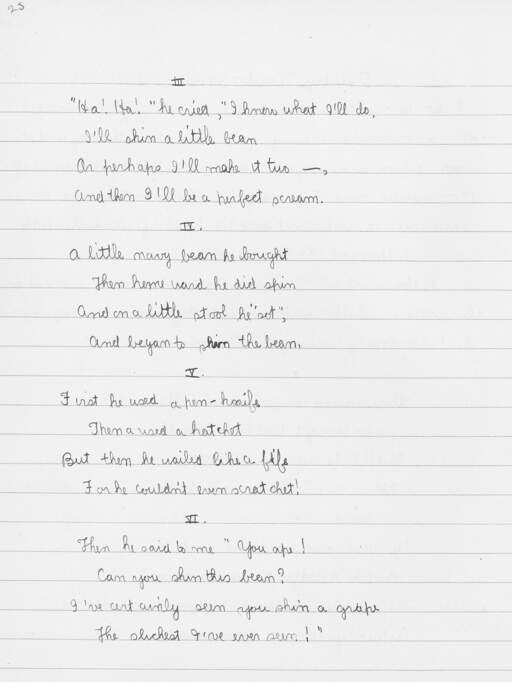 25
III
"Ha! Ha!" he cried, "I know what I'll do,
I'll skin a little bean
Or perhaps I'll make it two —,
And then I'll be a perfect scream.
IV.
A little navy bean he bought
Then home ward he did spin
And on a little stool he "sot",
And began to skin the bean.
V.
First he used a pen-knife
Then a used a hatchet
But then he wailed like a fife
For he couldn't even scratchet!
VI.
Then he said to me "You ape!
Can you skin this bean?
I've cert ainly seen you skin a grape
The slickest I've ever seen!"